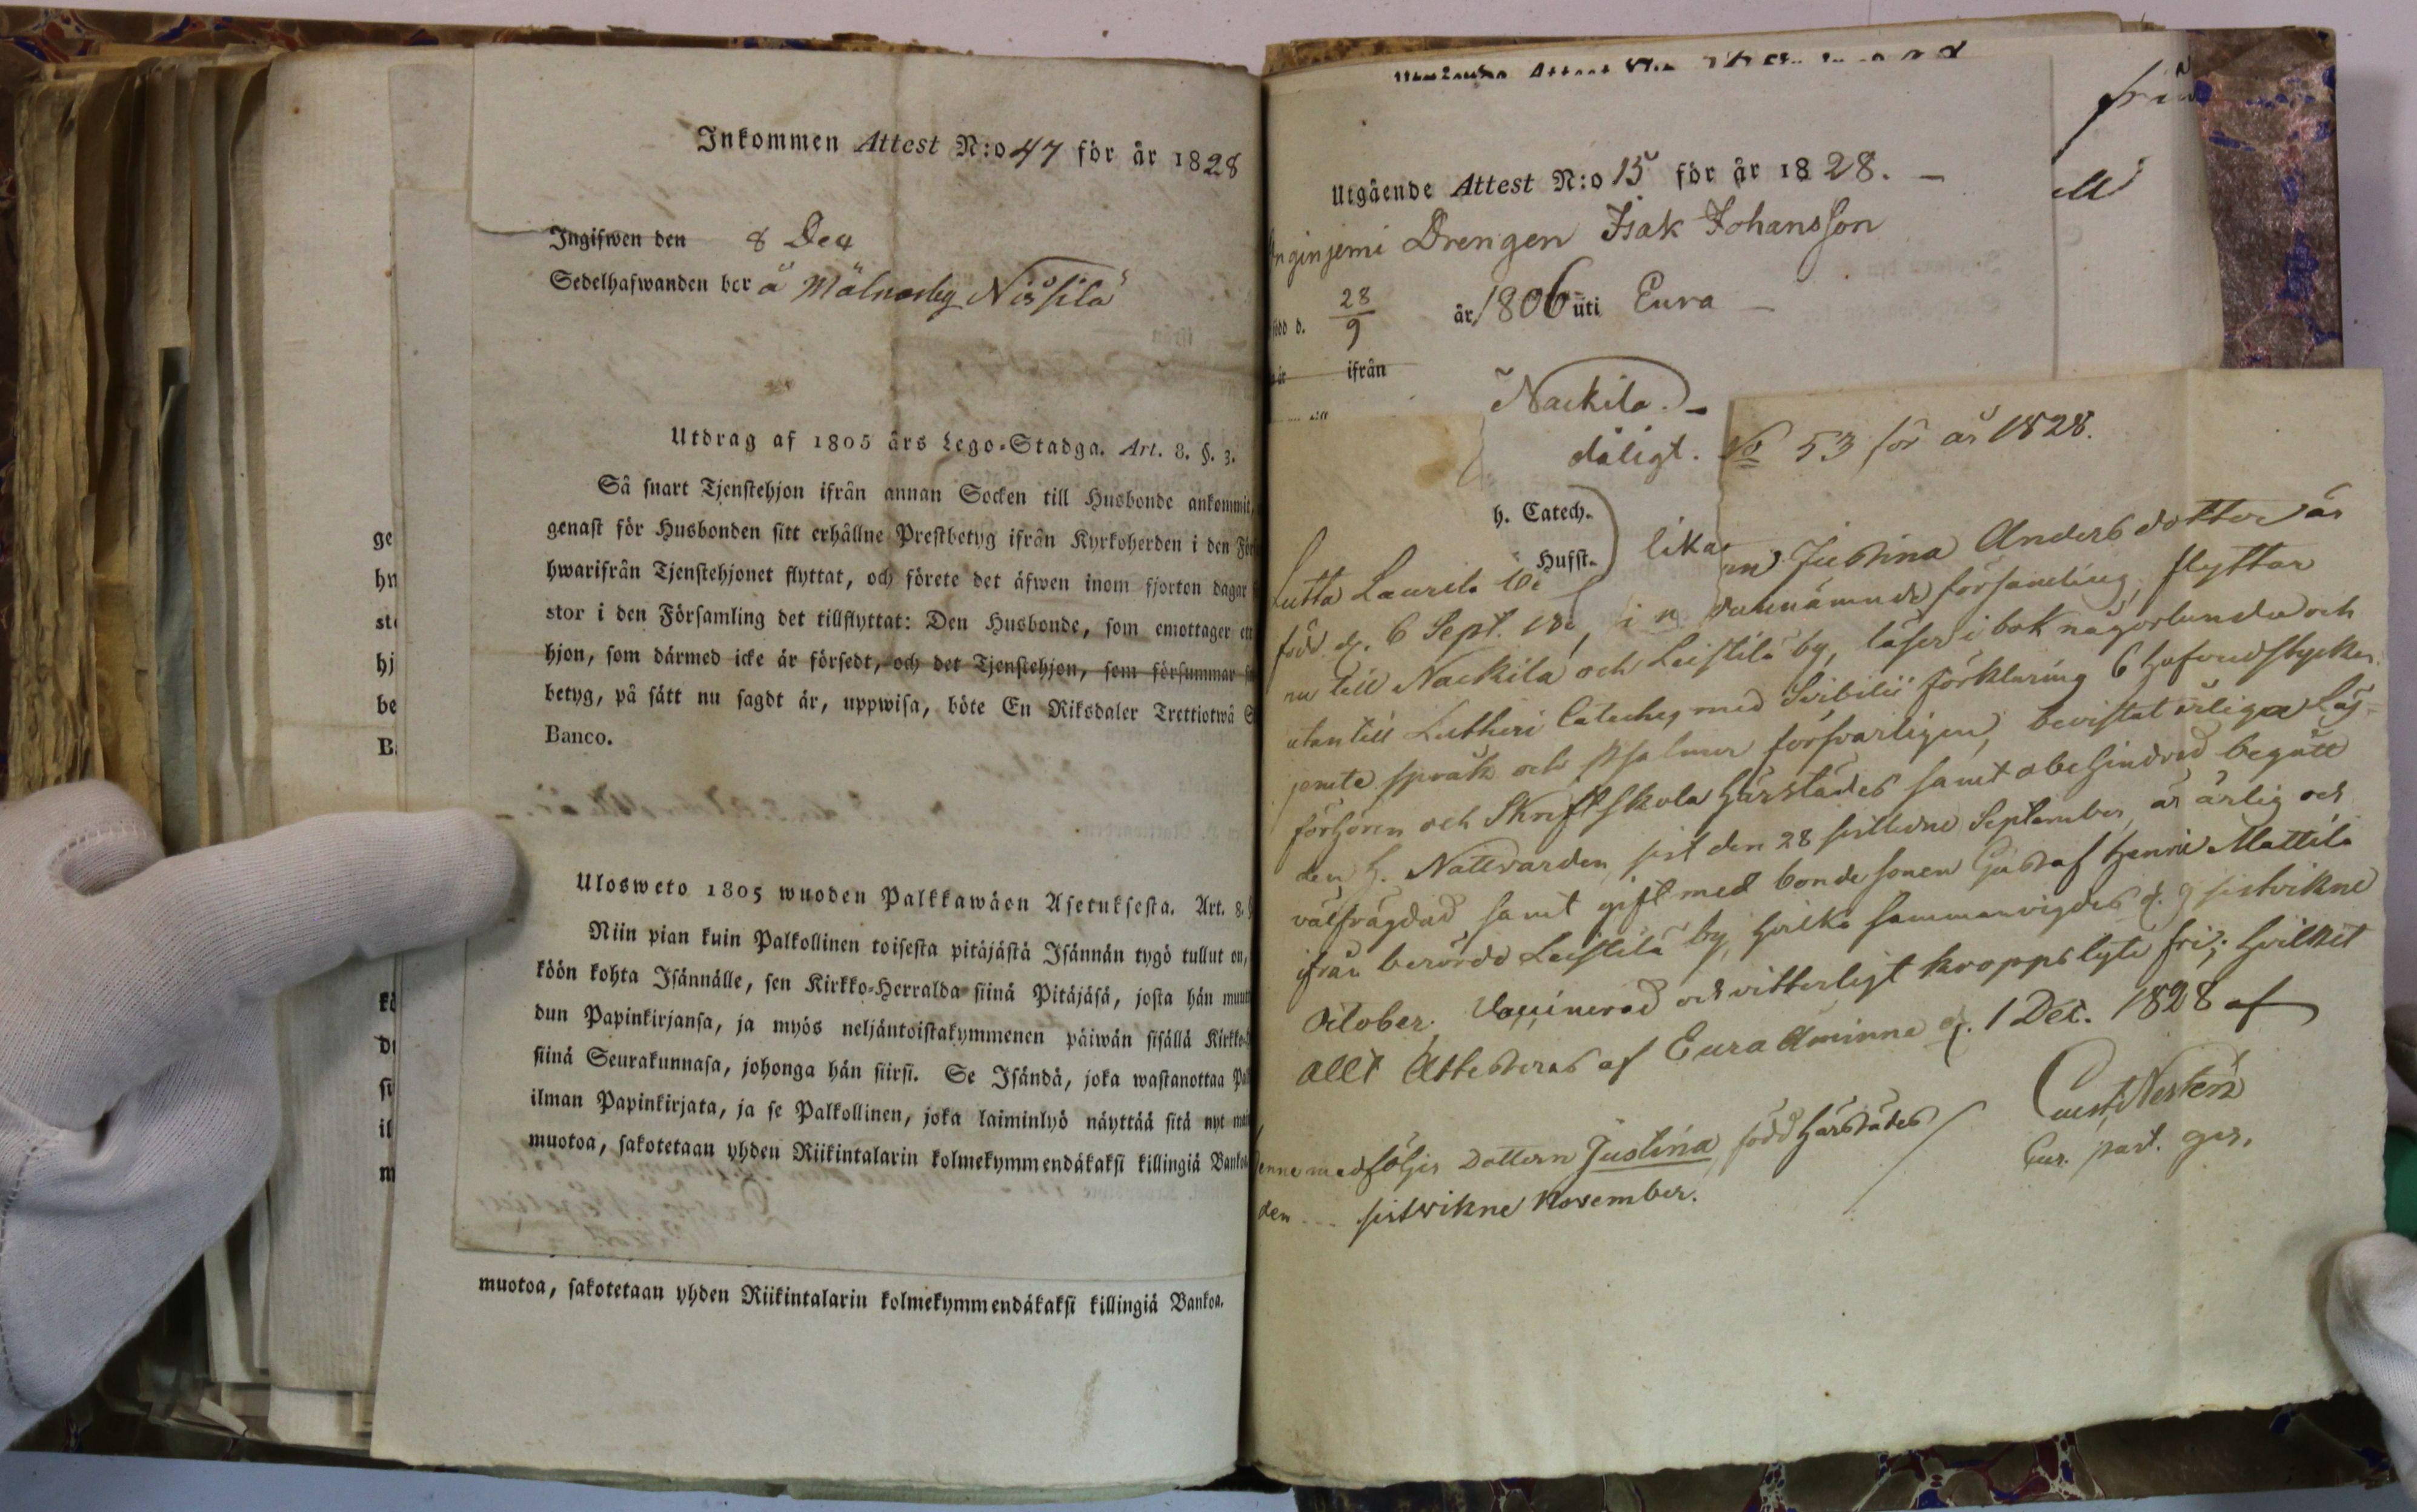 Inkommen Attest N:o 47 för år 1828
Ingifwen den 8 Dec
Sedelhafwanden bor å Mälnorby Nissilä
Utdrag af 1805 års Lego-Stadga. Art. 8. §. 3.
Så snart Tjenstehjon ifrån annan Socken till Husbonde ankommit,
genast för Husbonden sitt erhållne Prestbetyg ifrån Kyrkoherden i den För
hwarifrån Tjenstehjonet flyttat, och förete det äfwen inom fjorton dagar
stor i den Församling det tillflyttat: Den Husbonde, som emottager ett
hjon, som därmed icke är försedt, och det Tjenstehjon, som försummar
betyg, på sätt nu sagdt är, uppwisa, böte En Riksdaler Trettiotwå S
Banco.
Ulosweto 1805 wuoden Palkkawäen Asetuksesta. Art. 8.
Niin pian kuin Palkollinen toisesta pitäjästä Isännän tygö tullut on,
köön kohta Isännälle, sen Kirkko-Herralda siinä Pitäjäsä, josta hän muut
dun Papinkirjansa, ja myös neljäntoistakymmenen päiwän sisällä Kirkko
siinä Seurakunnasa, johonga hän siirsi. Se Isändä, joka wastanottaa Pal
ilman Papinkirjata, ja se Palkollinen, joka laiminlyö näyttää sitä nyt mai
muotoa, sakotetaan yhden Riikintalarin kolmekymmendäkaksi killingiä Bankoa
muotoa, sakotetaan yhden Riikintalarin kolmekymmendäkaksi killingiä Bankoa.
ge
hn
ste
hj
be
Ba
kö
du
si
il
m
Utgående Attest N:o 15 för år 1828. –
Drengen Isak Johansson
född d. 28/9 år 1806 uti Eura –
ifrån
Nackila. –
dåligt.
h. Catech.
Hufst. lika
frå
No 53 för år 1828.
Lutta Laurila Justina Andersdotter är
född d. 6 Sept. 18 i n församling, flyttar
nu till Nackila och Leistilä by, läser i bok någorlunda och
utan till Lutheri Cateches med Svibilii förklaring 6 hufvudstycken
jemte språk och psalmer försvarligen, bevistat årliga Läs=
förhören och Skriftskola härstädes samt obehindrad begått
den H. Nattvarden sist den 28 sistledne September, är ärlig och
välfrägdad samt gift med bondesonen Gustaf Henric Mattila
ifrån berörde Leistilä by, hvilka sammanvigdes d. 9 sistvikne
October. Vaccinerad och vitterligt kroppslyte fri; hvilket
allt Attesteras af Eura Åminne d. 1 Dec. 1828 af
Nestén
Eur. past. ger.
Henne medföljer Dottern Justina, född härstädes
den ... sistvikne November.